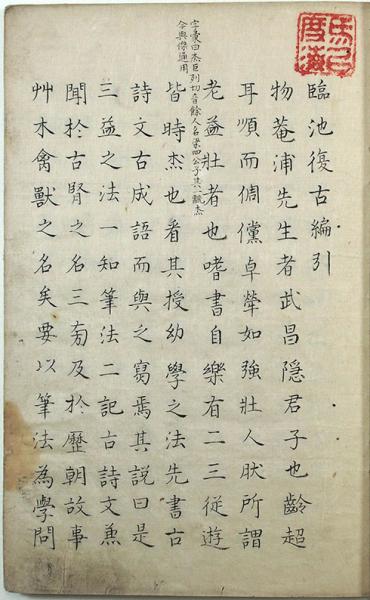 臨池復古編引
物菴浦先生者武昌隱君子也齡超
耳順而倜儻卓犖如強壯人肰所謂
老益壯者也嗜書自樂有二三從遊
字彙曰杰巨列切音餘人名梁四公子其一杰
今與傑通用
皆時杰也看其授幼學之法先書古
詩文古成語而與之寫焉其說曰是
三益之法一知筆法二記古詩文兼
聞於古賢之名三旁及於歷朝故事
艸木禽獸之名矣要以筆法為學問